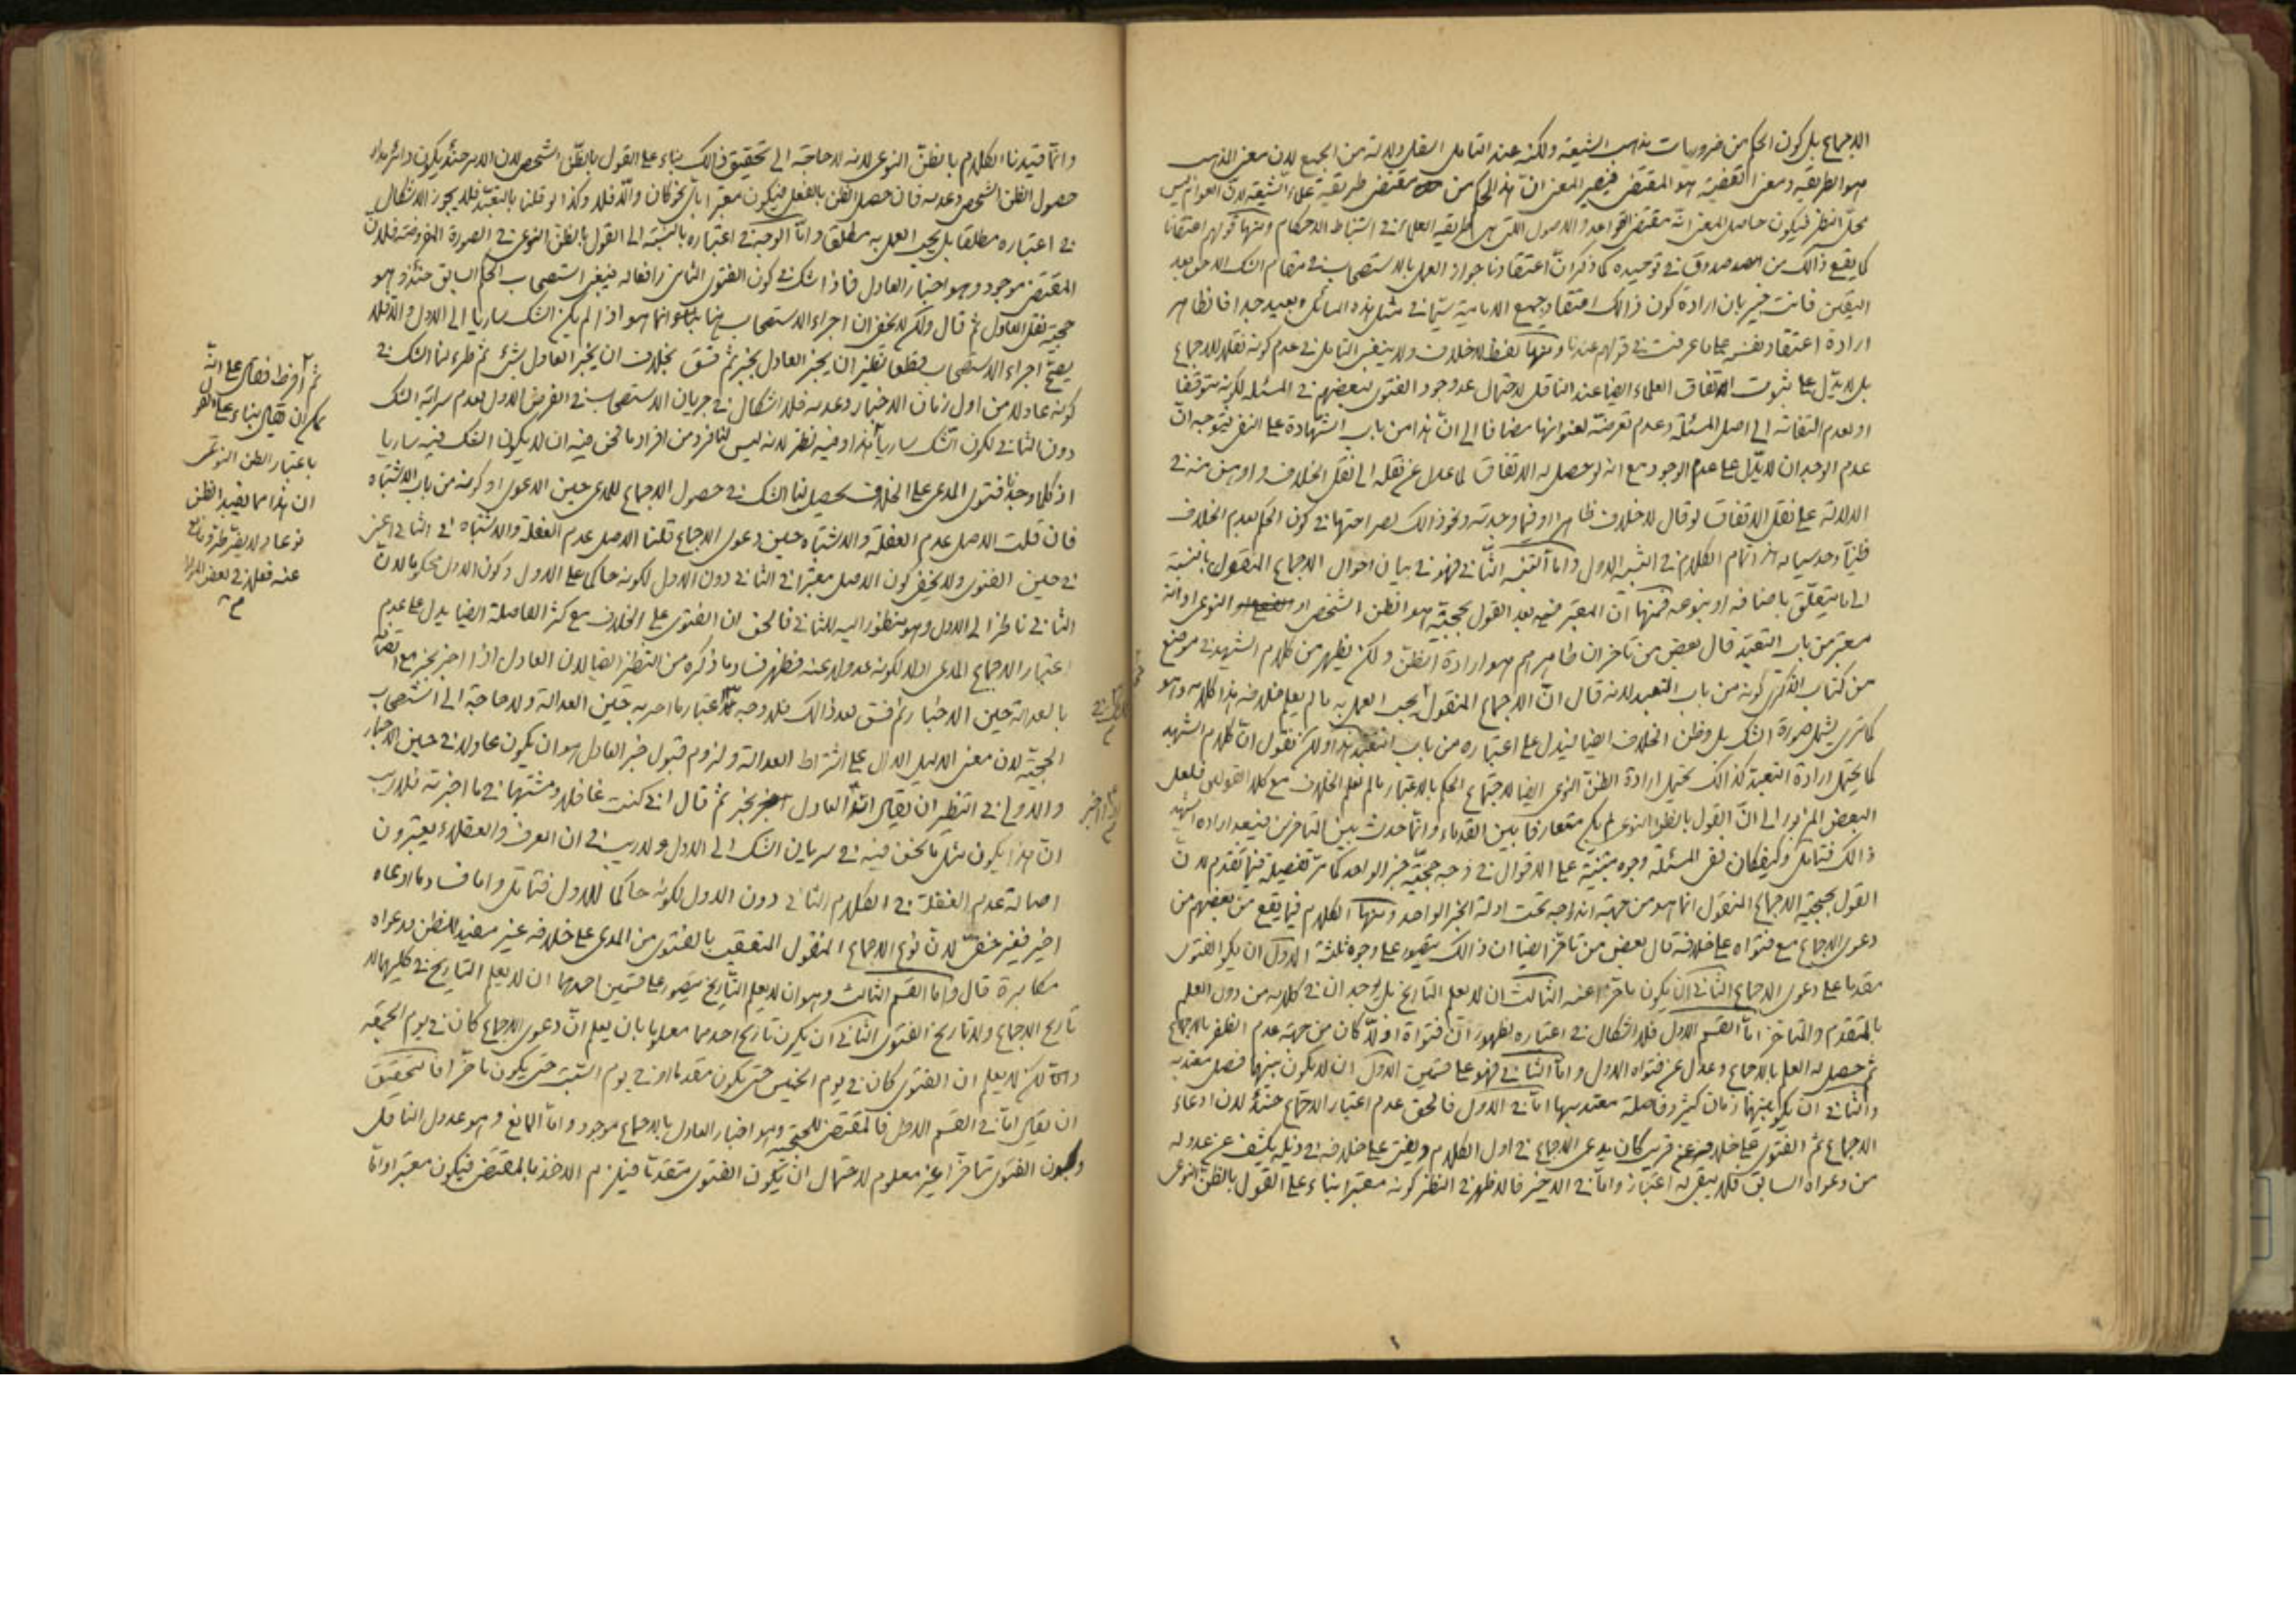 الاجماع بل كون الحكم من ضروريات مذهب الشيعة ولكنه عند التامل اقل دلالة من الجميع لان معنى المذهب
هو الطريقة ومعنى القضية هو المقتضى فيصير المعنى ان هذا الحكم من مقتضى طريقة علماء الشيعة لان العوام ليس
محل النظر فيكون حاصل المعنى انه مقتضى القواعد والاصول التى هى طريقة العلماء فى استنباط الاحكام ومنها قولهم اعتقادنا
كما يقع ذالك من الصدوق فى توحيده كما ذكر ان اعتقادنا جواز العمل بالاستصحاب فى مقام الشك اللاحق بعد
اليقين فانت خبير بان ارادة كون ذالك اعتقاد جميع الامامية سيما فى مثل هذه المسائل بعيد جدا فالظاهر
ارادة اعتقاد نفسه على ما عرفت فى قولهم عندنا ومنها لفظ لا خلاف ولا ينبغى التامل فى عدم كونه نقلا للاجماع
بل لا يدل على ثبوت اتفاق العلماء ايضا عند الناقل لاحتمال عدم وجود الفتوى لبعضهم فى المسئلة لكونه متوقفا
او لعدم التفاته الى اصل المسئلة وعدم تعرضه لعنوانها مضافا الى ان هذا من باب الشهادة على النفى فيتوجه ان
عدم الوجدان لا يدل على عدم الوجود مع انه لو حصل له الاتفاق لما عدل عن نقله الى نقل الخلاف واوهن منه فى
الدلالة على نقل الاتفاق لو قال لا خلاف ظاهرا او فيما وجدته ونحو ذالك لصراحتها فى كون الحكم بعدم الخلاف
ظنيا وحدسيا هذا تمام الكلام فى التنبيه الاول واما التنبيه الثانى فهو فى بيان احوال الاجماع المنقول بالنسبة
الى ما يتعلق باصنافه او بنوعه فمنها ان المعتبر فيه بعد القول بحجيته هو الظن الشخصى او النوعى او انه
معتبر من باب التعبد قال بعض من تاخر ان ظاهرهم هو ارادة الظن ولكن يظهر من كلام الشهيد فى موضع
من كتاب الذكرى كونه من باب التعبد لانه قال ان الاجماع المنقول يجب العمل به ما لم يعلم خلافه هذا كلامه وهو
كما ترى يشمل صورة الشك بل وظن الخلاف ايضا ليدل على اعتباره من باب التعبد هذا ولكن نقول ان كلام الشهيد
كما يحتمل ارادة التعبد كذالك يحتمل ارادة الظن النوعى ايضا لاجتماع الحكم بالاعتبار ما لم يعلم الخلاف مع كلا القولين فلعل
البعض المزبور الى ان القول بالظن النوعى لم يكن متعارفا بين القدماء وانما حدث بين المتاخرين فيبعد ارادة الشهيد
ذالك فتامل وكيف كان ففى المسئلة وجوه مبتنية على الاقوال فى وجه حجية خبر الواحد كما مر تفصيله فيما تقدم لان
القول بحجية الاجماع المنقول انما هو من جهة اندراجه تحت ادلة الخبر الواحد ومنها الكلام فيما يقع من بعضهم من
دعوى الاجماع مع فتواه على خلافه قال بعض من تاخر ايضا ان ذالك يتصور على وجوه ثلثة الاول ان يكون الفتوى
مقدما على دعوى الاجماع الثانى ان يكون تاخرا عنه الثالث ان لا يعلم التاريخ بل وجد ان فى كلامه من دون العلم
بالمتقدم والمتاخر اما القسم الاول فلا اشكال فى اعتباره لظهور ان فتواه اولا كان من جهة عدم الظفر بالاجماع
ثم حصل له العلم بالاجماع وعدل عن فتواه الاول واما الثانى فهو على قسمين الاول ان لا يكون بينهما فصل معتد به
والثانى ان يكون بينهما زمان كثير وفاصلة معتد بها اما فى الاول فالحق عدم اعتبار الاجماع حينئذ لان ادعاء
الاجماع ثم الفتوى على خلافه عن قريب كان يدعى الاجماع فى اول الكلام ويفتى على خلافه فى ذيله يكشف عن عدوله
من دعواه السابق فلا يبقى له اعتبار واما فى الاخير فالاظهر فى النظر كونه معتبرا بناء على القول بالظن النوعى
وانما قيدنا الكلام بالظن النوعى لانه لا حاجة الى تحقيق ذالك بناء على القول بالظن الشخصى لان الامر حينئذ يكون دائر مدار
حصول الظن الشخصى وعدمه فان حصل الظن بالفعل فيكون معتبرا باى نحو كان والا فلا وكذا لو قلنا بالتعبد فلا يجوز الاشكال
فى اعتباره مطلقا بل يجب العمل به مطلقا واما الوجه فى اعتباره بالنسبة الى القول بالظن النوعى فى الصورة المفروضة فلان
المقتضى موجود وهو اخبار العادل فاذا شك فى كون الفتوى الثانى رافعا له فينبغى استصحاب الحكم السابق حينئذ وهو
حجية نقل العادل ثم قال ولكن لا يخفى ان اجراء الاستصحاب هنا انما هو اذا لم يكن الشك ساريا الى الاول والا فلا
يصح اجراء الاستصحاب قطعا نظير ان يخبر العادل بخبر ثم فسق بخلاف ان يخبر العادل بشئ ثم طرء لنا الشك فى
كونه عادلا من اول زمان الاخبار وعدمه فلا اشكال فى جريان الاستصحاب فى الفرض الاول لعدم سراية الشك
دون الثانى لكون الشك ساريا هذا وفيه نظر لانه ليس لنا فرد من افراد ما نحن فيه ان لا يكون الشك فيه ساريا
اذ كلما وجدنا فتوى المدعى على الخلاف يحصل لنا الشك فى حصول الاجماع للمدعى حين الدعوى او كونه من باب الاشتباه
فان قلت الاصل عدم الغفلة والاشتباه حين دعوى الاجماع قلنا الاصل عدم الغفلة والاشتباه فى الثانى اعنى
فى حين الفتوى ولا يخفى كون الاصل معتبرا فى الثانى دون الاول لكونه حاكما على الاول وكون الاول محكوما لان
الثانى ناظر الى الاول وهو منظور اليه للثانى فالحق ان الفتوى على الخلاف مع كثر الفاصلة ايضا يدل على عدم
اعتبار الاجماع المدعى اولا لكونه عدولا عنه فظهر فساد ما ذكره من التنظير ايضا لان العادل اذا اخبر بخبر مع اتصافه
بالعدالة حين الاخبار ثم فسق بعد ذالك فلا وجه لعدم اعتبار ما اخبر به حين العدالة ولا حاجة الى استصحاب
الحجية لان معنى الدليل الدال على اشتراط العدالة ولزوم قبول خبر العادل هو ان يكون عادلا فى حين الاخبار
والاولى فى النظر ان يقال انه العادل اخبر بخبر ثم قال انى كنت غافلا ومشتبها فى ما اخبرته فلا ريب
ان هذا يكون مثل ما نحن فيه فى سريان الشك الى الاول ولا ريب فى ان العرف والعقلاء يعتبرون
اصالة عدم الغفلة فى الكلام الثانى دون الاول لكونه حاكما للاول فتامل واما فساد ما ادعاه
اخيرا فغير خفى لان نوع الاجماع المنقول المتعقب بالفتوى من المدعى على خلافه غير مفيد للظن ودعواه
مكابرة قال واما القسم الثالث وهو ان لا يعلم التاريخ يتصور على قسمين احدهما ان لا يعلم التاريخ فى كليهما لا
تاريخ الاجماع ولا تاريخ الفتوى الثانى ان يكون تاريخ احدهما معلوما بان يعلم ان دعوى الاجماع كان فى يوم الجمعة
ولكن لا يعلم ان الفتوى كان فى يوم الخميس حتى يكون مقدما او فى يوم السبت حتى يكون تاخرا فالتحقيق
ان يقال اما فى القسم الاول فالمقتضى للحجية وهو اخبار العادل بالاجماع موجود واما المانع وهو عدول الناقل
وكون الفتوى متاخرا غير معلوم لاحتمال ان يكون الفتوى متقدما فيلزم الاخذ بالمقتضى فيكون معتبرا واما
ثم افرط فقال على انه
يمكن ان يقال بناء على القول
باعتبار الظن النوعى
ان هذا مما يفيد الظن
نوعا ولا يضر طرو مانع
عنه فعلا فى بعض الموارد